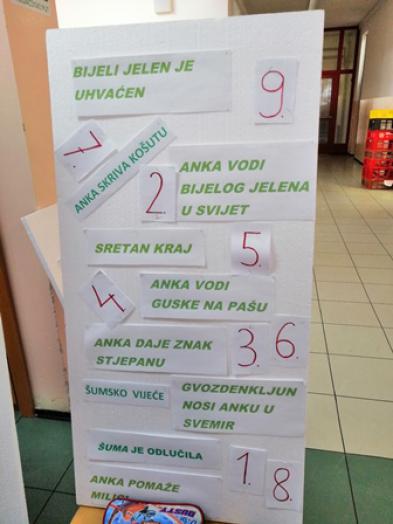 BIJELI JELEN JE
UHVAĆEN
9.
7.
ANKA SKRIVA KOŠUTU
2.
ANKA VODI
BIJELOG JELENA
U SVIJET
SRETAN KRAJ
5.
4.
ANKA VODI
GUSKE NA PAŠU
ANKA DAJE ZNAK
STJEPANU
3.
6.
ŠUMSKO VIJEĆE
GVOZDENKLJUN
NOSI ANKU U
SVEMIR
ŠUMA JE ODLUČILA
1.
8.
ANKA POMAŽE
DUSTY